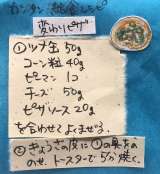 カンタン「給食レシピ」
変わりピザ
①ツナ缶 50g
コーン粒 40g
ピーマン 1コ
チーズ 50g
ピザソース 20g
を合わせてよくまぜる。
②ぎょうざの皮に①の具をの
のせ、トースターで5分焼く。